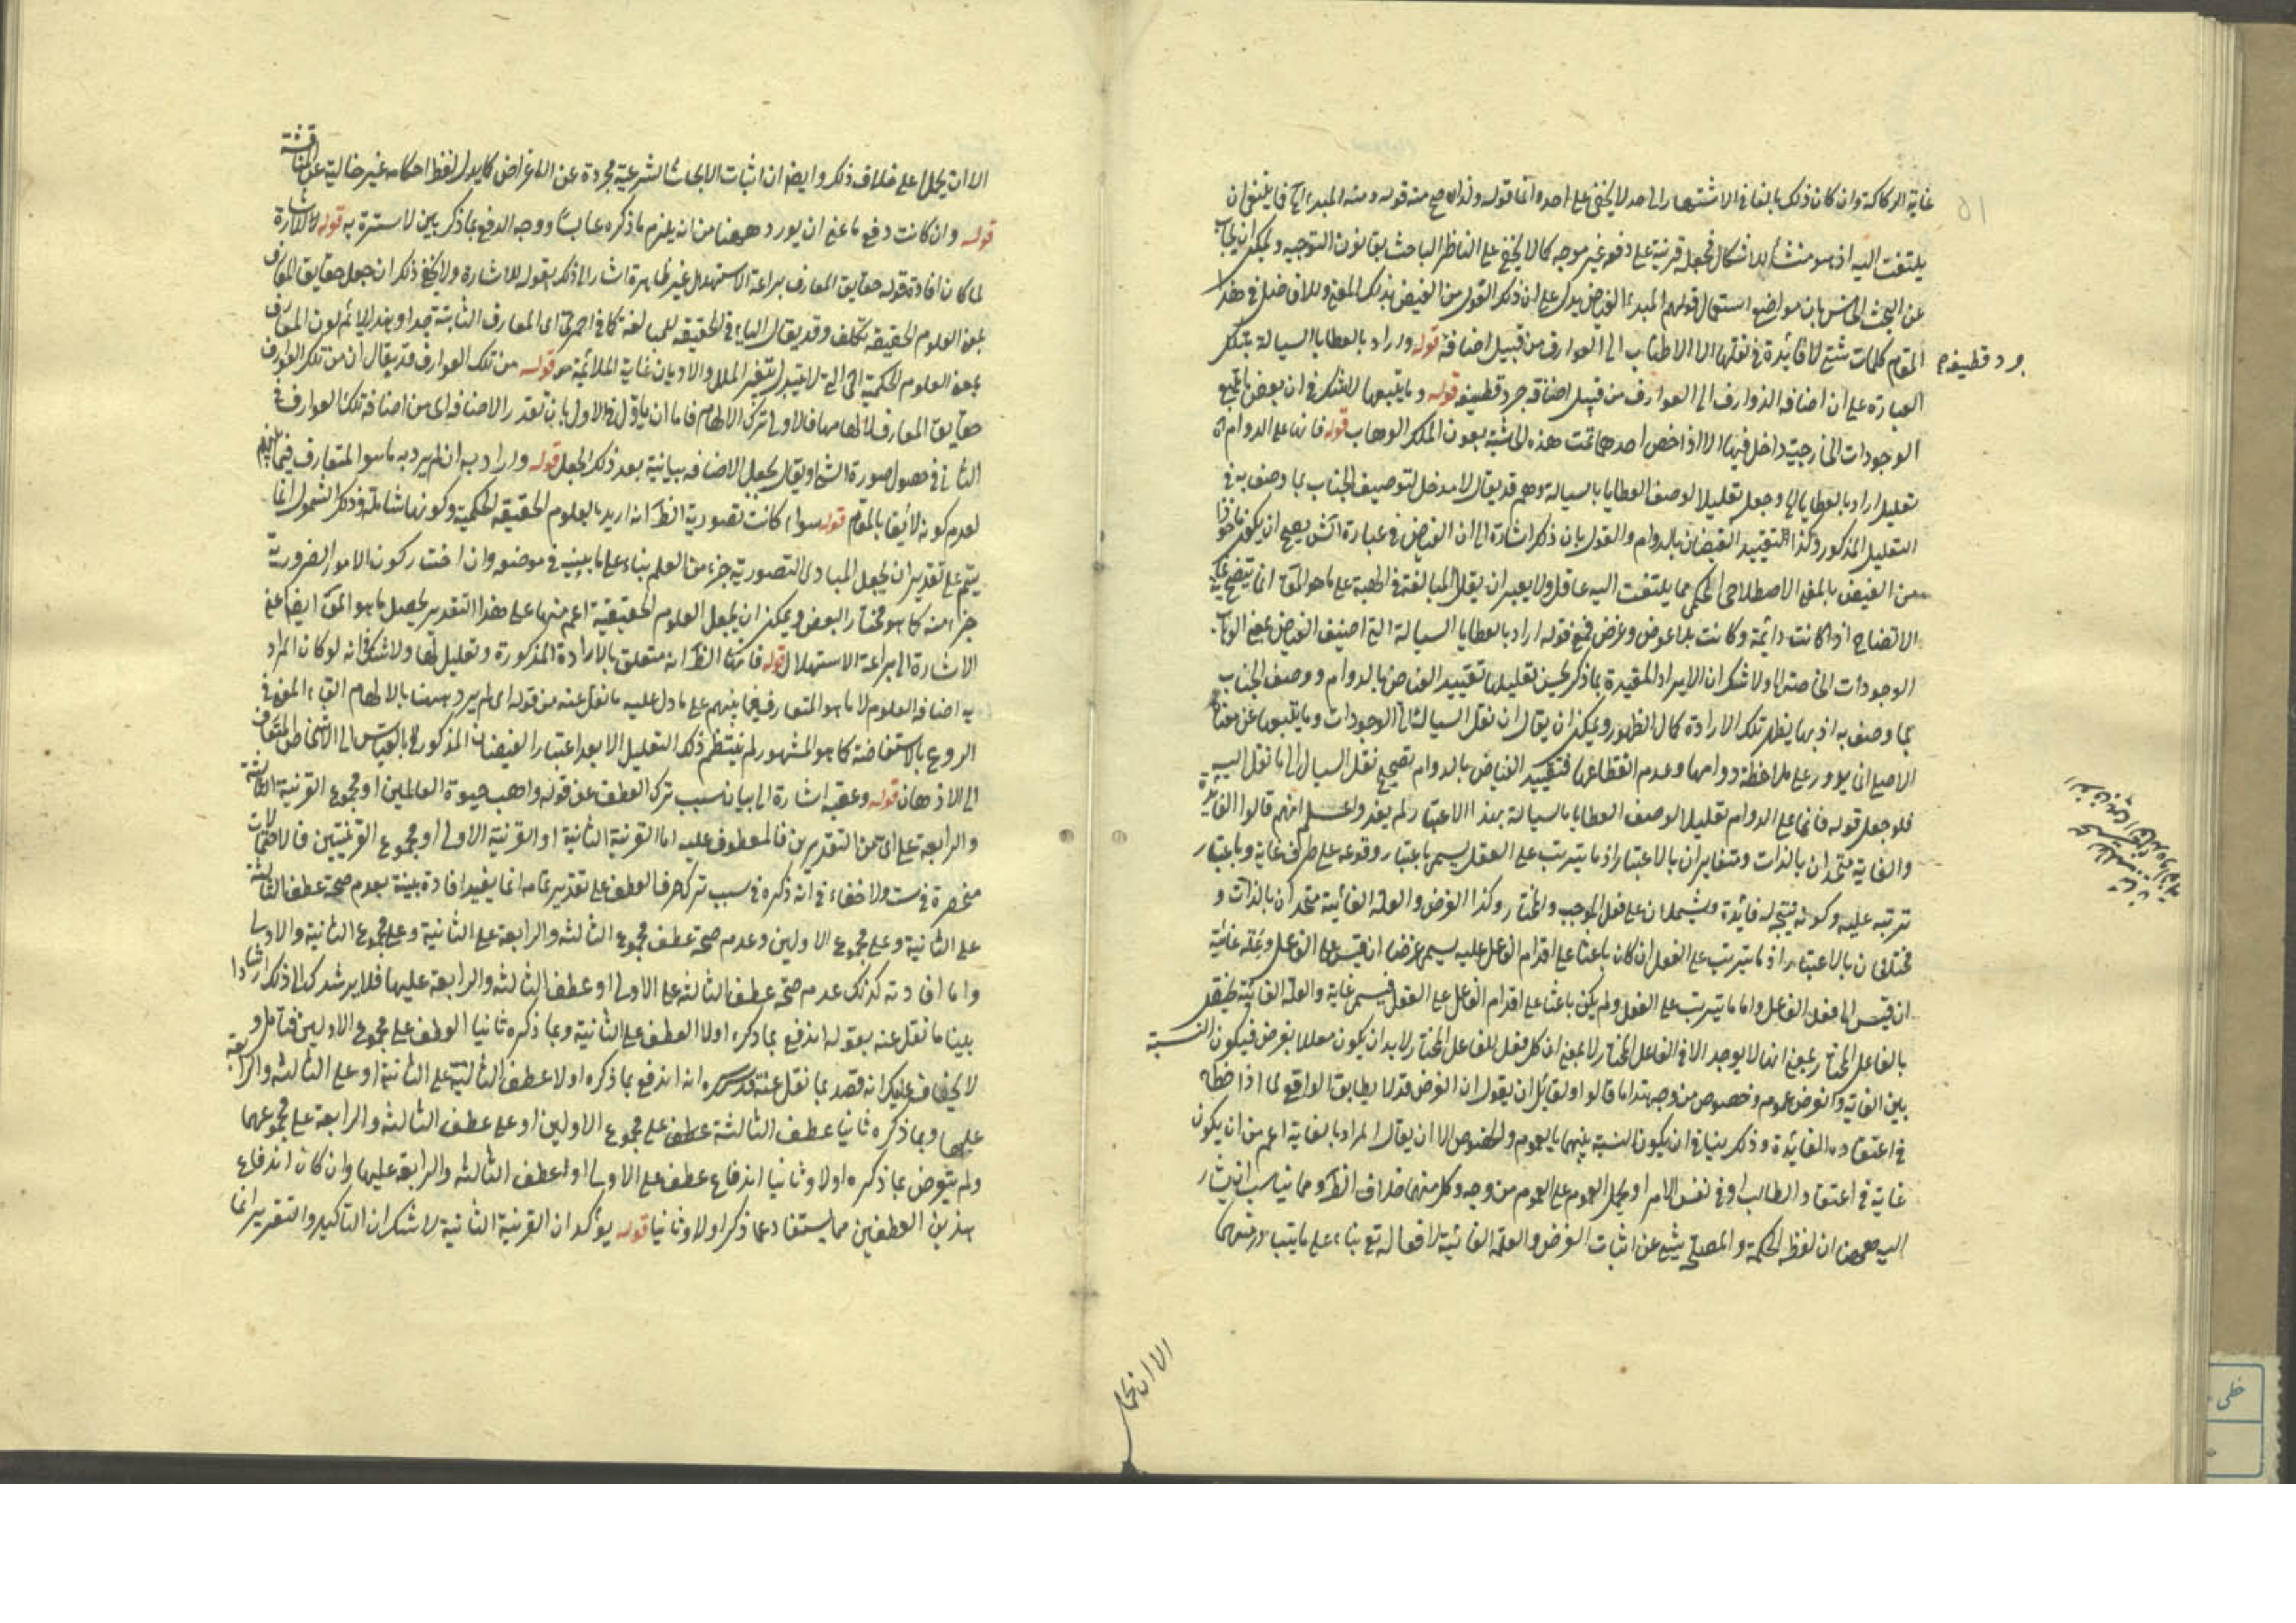 غاية الركاكة وان كان ذلك بالغا فى الاشتهار الى حد لا يخفى على احد واما قوله ولذا صح منه قوله ومنه المبدء
يلتفت اليه اذ هو منشأ للاشكال فجعله قرينة على دفعه غير موجه كما لا يخفى على الناظر الباحث بقانون التوجيه ويمكن ان يجاب
عن البحث بان مواضع استعمال قولهم المبدء الفياض يدل على ان ذلك القول من الفيض بذلك المعنى وللافاضل فى هذا
المقام كلمات شتى لا فائدة فى نقلها الا الاطناب الى العوارف من قبيل اضافة قوله واراد بالعطايا السيالة
جرد قطيفة
العبارة على ان اضافة الذوارف الى العوارف من قبيل اضافة جرد قطيفة قوله وما يتبعها لا شك فى ان بعض ما يتبع
الوجودات الخارجية داخل فيها الا اذا خص احدهما تمت هذه الحاشية بعون الملك الوهاب قوله فانها على الدوام
تعليل اراد بالعطايا الى وجعله تعليلا لوصف العطايا بالسيالة وهم قد يقال لا مدخل لتوصيف الجناب بما وصف به فى
التعليل المذكور وكذا التقييد الفيضان بالدوام والقول بان ذكر اشارة الى ان الفياض فى عبارة الش يصح ان يكون ماخوذا
من الفيض بالمعنى الاصطلاحى الحكمى مما يلتفت اليه عاقل ولا يبعد ان يقال المبالغة فى الهبة على ما هو المق انما يتضح
الاتضاح اذا كانت دائمة وكانت بلا عوض وغرض فمع قوله اراد بالعطايا السيالة التى اضيف الفياض بمعنى الوهاب
الوجودات الخاصة ولا شك ان الايراد المقيدة بما ذكر يحسن تعليلها تقييد الفياض بالدوام ووصف الجناب
بما وصف به اذ بها يظهر تلك الارادة كمال الظهور ويمكن ان يقال ان نقل السيالة الى الوجودات وما يتبعها عن معناه
الاصلى انما يدور على ملاحظة دوامها وعدم انقطاعها فتقييد الفياض بالدوام تصحيح نقل السيال الى ما نقل اليه
فلو جعل قوله فانها على الدوام تعليلا لوصف العطايا بالسيالة بهذا الاعتبار لم يبعد واعلم انهم قالوا الفائدة
والغاية يتحدان بالذات ومتغايران بالاعتبار اذ ما يترتب على الفعل يسمى باعتبار وقوعه على طرفه غاية وباعتبار
ترتبه عليه وكونه نتيجة له فائدة ويشملان على فعل الموجب والمختار وكذا الغرض والعلة الغائية متحدان بالذات و
مختلفان بالاعتبار اذ ما يترتب على الفعل ان كان باعثا على اقدام الفاعل عليه يسمى غرضا ان قيس الى الفاعل وعلة غائية
ان قيس الى فعل الفاعل واما ما يترتب على الفعل ولم يكن باعثا على اقدام الفاعل على الفعل فيسمى غاية والعلة الغائية
بالفاعل المختار بمعنى انها لا يوجد الا فى الفاعل المختار لا بمعنى ان كل فعل للفاعل المختار لا بد ان يكون معللا بغرض فيكون النسبة
بين الغاية والغرض عموم وخصوص من وجه هذا ما قالوا ولقائل ان يقول ان الغرض قد لا يطابق الواقع لما اذا
فى اعتقاده الفائدة وذلك ينافى ان يكون النسبة بينهما بالعموم والخصوص الا ان يقال المراد بالغاية اعم من ان يكون
غاية فى اعتقاد الطالب او فى نفس الامر او يحمل العموم على العموم من وجه وكل منهما خلاف الظ ومما يناسب ان يشار
اليه ههنا ان لفظ الحكمة والمصلحة يشعر عن اثبات الغرض والعلة الغائية لافعاله تع بناء على ما يتبادر منهما
الا ان يحمل
الا ان يحمل على خلاف ذلك وايضا ان اثبات الابحاث الشرعية مجردة عن الاغراض كما يدل لفظ احكامه غير خالية عن المناقشة
قوله وان كانت دفع ما عسى ان يورد ههنا من انه يلزم ما ذكره عابثا ووجه الدفع بما ذكر بين لا سترة به قوله للاشارة
لما كان افادة قوله حقايق المعارف براعة الاستهلال غير ظاهرة اشار الى ذكر بقوله للاشارة ولا يخفى ذلك ان جعل حقايق المعارف
بمعنى العلوم الحقيقية تكلف وقد يقال الياء فى الحقيقية للمبالغة كما فى احمرى اى المعارف الثابتة جدا وهذا يلائم لون المعارف
بمعنى العلوم الحكمية التى لا تتبدل بتغير الملل والاديان غاية الملائمة قوله من تلك العوارف قد يقال ان من تلك العوارف
حقايق المعارف لالهامها فالاولى ترك الالهام فاما ان ياول فى الاول بان تعذر الاضافة اى من اضافة تلك العوارف
الثانى فى حصول صورة الشئ او يقال بجعل الاضافة بيانية بعد ذلك الجعل قوله واراد به ان لم يرد به ما هو المتعارف فيما بينهم
لعدم كونه لائقا بالمقام قوله سواء كانت تصورية الظ انه اريد بالعلوم الحقيقية الحكمية وكونها شاملة وذلك الشمول انما
يتم على تقدير ان يجعل المبادى التصورية جزء من العلم بناء على ما بين فى موضعه وان اخترت كون الامور الضرورية
جزء منه كما هو مختار البعض ويمكن ان يجعل العلوم الحقيقية اعم منها على هذا التقدير يحصل ما هو المق ايضا
الاشارة الى براعة الاستهلال قوله فانها الظ انه متعلق بالارادة المذكورة وتعليل لها ولا شك فى انه لو كان المراد
به اضافة العلوم لا ما هو المتعارف فيما بينهم على ما دل عليه ما نقل عنه من قوله اى لم يرد ههنا بالالهام القاء المعنى فى
الروع بالاستفاضة كما هو المشهور لم ينتظم ذلك التعليل الا بعد اعتبار الفيضان المذكور بالقياس الى اشخاص
الى الاذهان قوله وعقبه اشارة الى بيان سبب ترك العطف عن قوله واهب حيوة العالمين او مجموع القرينة الثالثة
والرابعة على اى من التقديرين فالمعطوف عليه اما القرينة الثانية او القرينة الاولى او مجموع القرينتين فالاحتمالات
منحصرة فى ست ولا خفاء فى انه ذكره فى سبب ترك حرف العطف على تقدير تمامه انما يفيد افادة بينة بعدم صحة عطف الثالثة
على الثانية وعلى مجموع الاولين وعدم صحة عطف مجموع الثالثة والرابعة على الثانية وعلى مجموع الثانية والاولى
واما افادته كذلك عدم صحة عطف الثالثة على الاولى او عطف الثالثة والرابعة عليها فلا يرشدك الى ذلك ارشادا
بينا ما نقل عنه بقوله اندفع بما ذكره اولا العطف على الثانية وبما ذكره ثانيا العطف على مجموع الاولين فتامل و
لا يخفى عليك انه قصد بما نقل عنه قدس سره انه اندفع بما ذكره اولا عطف الثالثة على الثانية او على الثالثة والرابعة
عليها وبما ذكره ثانيا عطف الثالثة عطف على مجموع الاولين او على عطف الثالثة والرابعة على مجموعهما
ولم يتعرض بما ذكره اولا وثانيا اندفاع عطف على الاولى او لعطف الثالثة والرابعة عليها وان كان اندفاع
هذين العطفين مما يستفاد مما ذكر اولا وثانيا قوله يؤكد ان القرينة الثانية لا شك ان التاكيد والتقرير انما
خطى